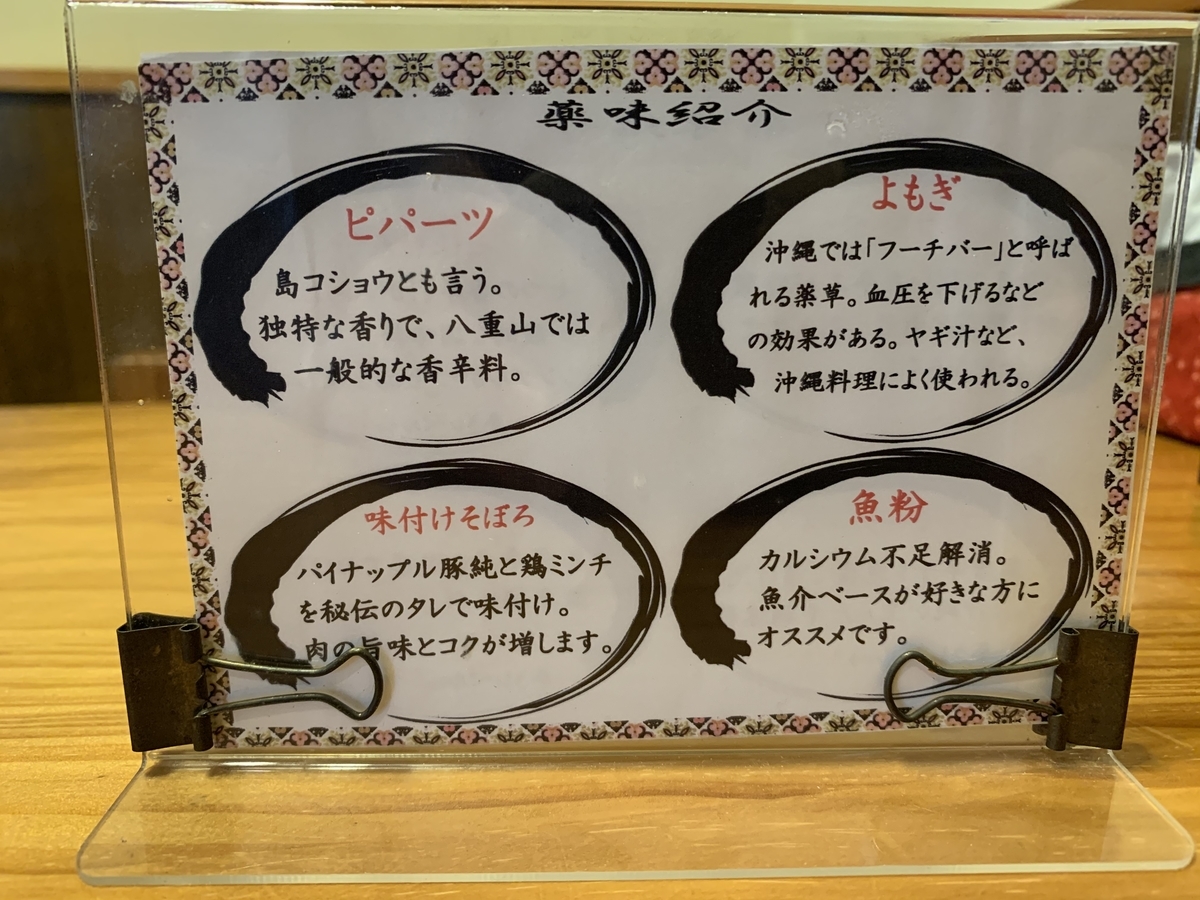 薬味紹介
ピパーツ
島コショウとも言う。
独特な香りで、八重山では
一般的な香辛料。
よもぎ
沖縄では「フーチバー」と呼ば
れる薬草。血圧を下げるなど
の効果がある。ヤギ汁など、
沖縄料理によく使われる。
味付けそぼろ
パイナップル豚純と鶏ミンチ
を秘伝のタレで味付け。
肉の旨味とコクが増します。
魚粉
カルシウム不足解消。
魚介ベースが好きな方に
オススメです。